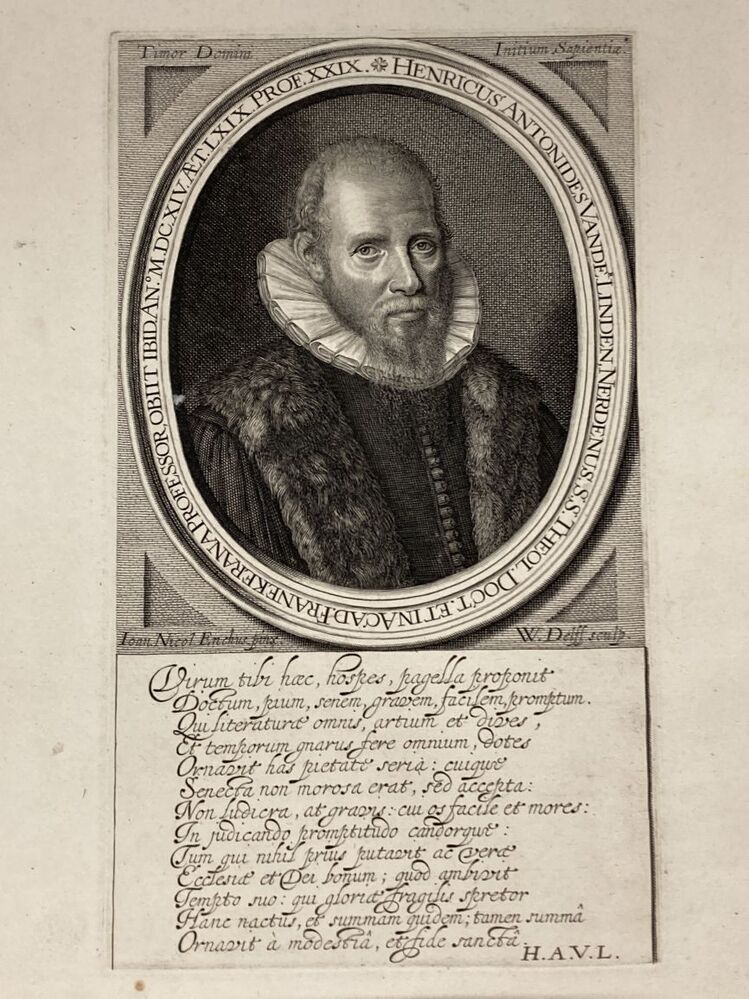 Timor Domini
Initium Sapientiæ
❉ HENRICUS ANTONIDES VANDE˙ LINDEN, NERDENUS. S.S. THEOL. DOCT. ET IN ACAD. FRANEKERANA PROFESSOR, OBIIT IBID. AN.° M.DCXIV. ÆT. LXIX. PROF. XXIX.
Ioan Nicol Enchus pinx.
W. Delff sculp.
Virum tibi hæc, hospes, pagella proponit
Doctum, pium, senem, gravem, facilem, promptum.
Qui literaturæ omnis, artium et dives,
Et temporum gnarus fere omnium, dotes
Ornavit has pietate seriâ: cuique
Senecta non morosa erat, sed accepta:
Non ludicra, at gravis: cui os facile et mores:
In judicando promptitudo candorque:
Tum qui nihil prius putavit ac veræ
Ecclesiæ et Dei bonum; quod ambivit
Tempto suo: qui gloriæ fragilis spretor
Hanc nactus, et summam quidem; tamen summâ
Ornavit à modestiâ, et fide sanctâ.
H.A.V.L.